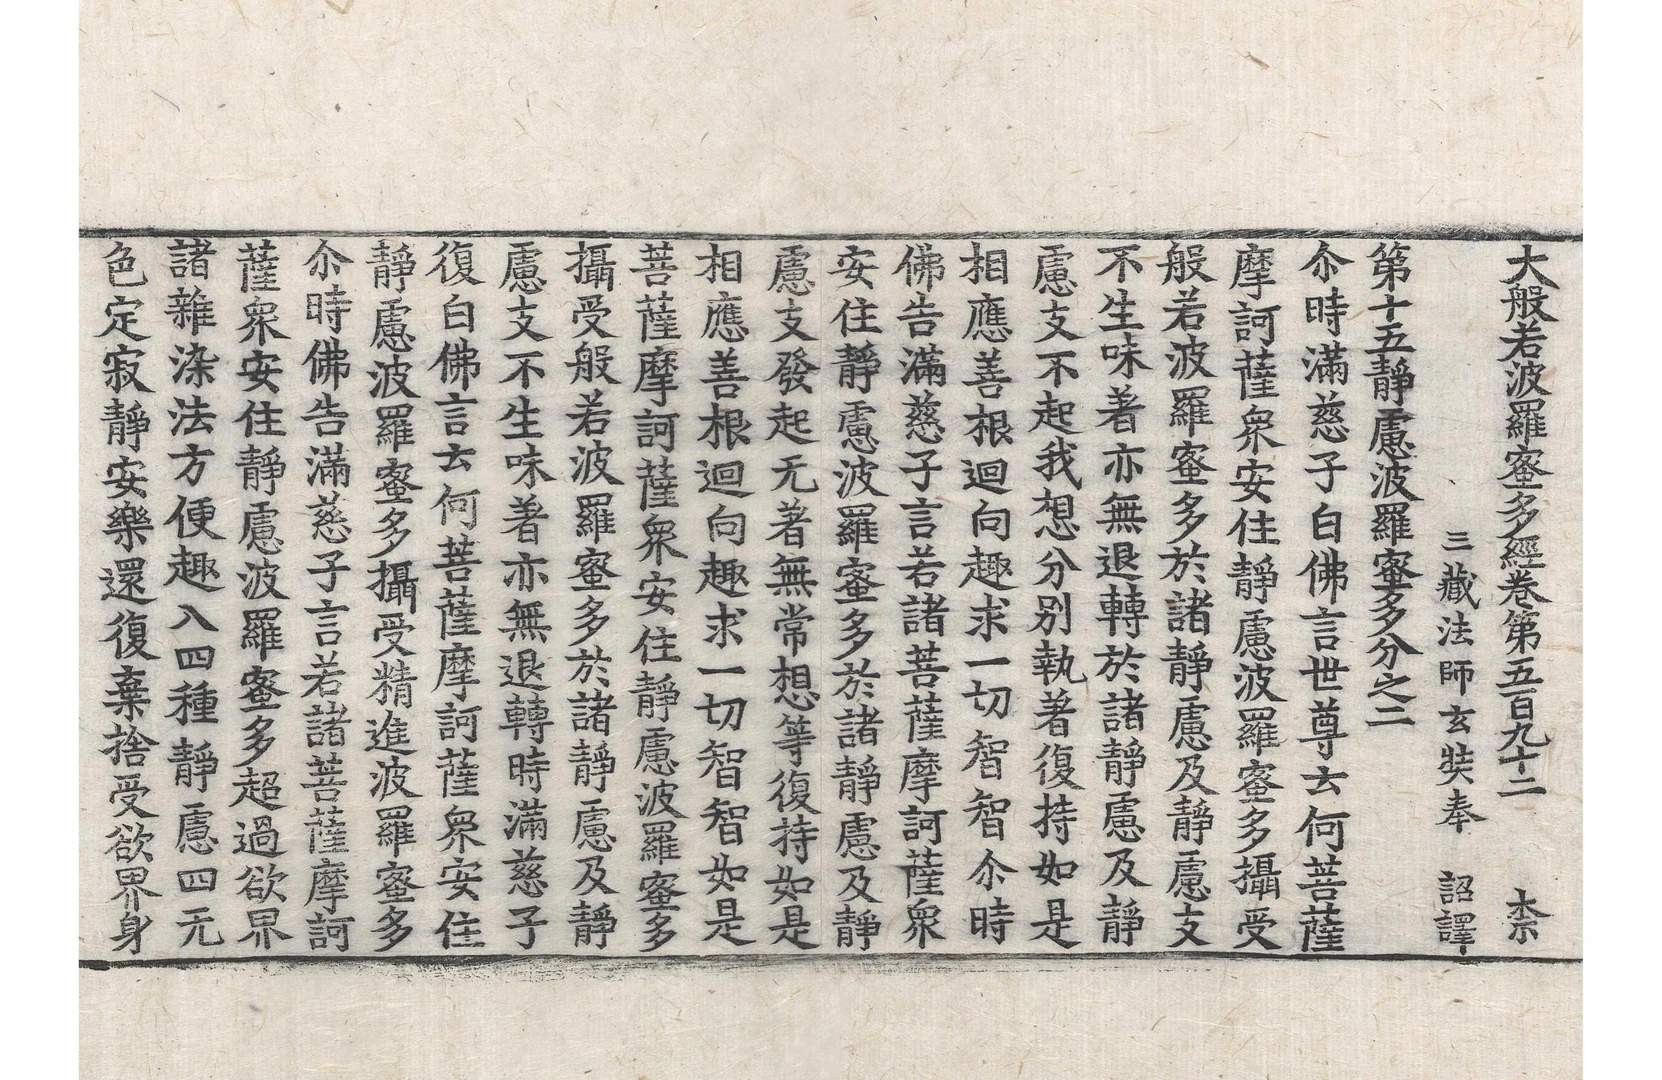 大般若波羅蜜多經卷第五百九十二 柰
三藏法師玄奘奉 詔譯
第十五靜慮波羅蜜多分之二
尒時滿慈子白佛言世尊云何菩薩
摩訶薩衆安住靜慮波羅蜜多攝受
般若波羅蜜多於諸靜慮及靜慮支
不生味著亦無退轉於諸靜慮及靜
慮支不起我想分別執著復持如是
相應善根迴向趣求一切智智尒時
佛告滿慈子言若諸菩薩摩訶薩衆
安住靜慮波羅蜜多於諸靜慮及靜
慮支發起无著無常想等復持如是
相應善根迴向趣求一切智智如是
菩薩摩訶薩衆安住靜慮波羅蜜多
攝受般若波羅蜜多於諸靜慮及靜
慮支不生味著亦無退轉時滿慈子
復白佛言云何菩薩摩訶薩衆安住
靜慮波羅蜜多攝受精進波羅蜜多
尒時佛告滿慈子言若諸菩薩摩訶
薩衆安住靜慮波羅蜜多超過欲界
諸雜染法方便趣入四種靜慮四无
色定寂靜安樂還復棄捨受欲界身